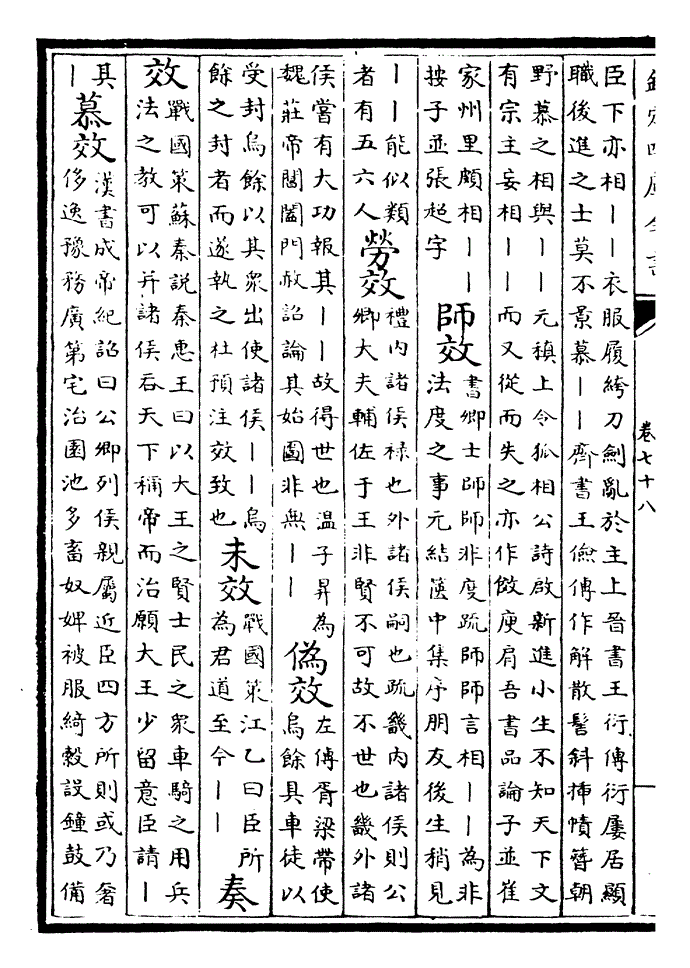 欽定四庫全書
卷七十八
臣下亦相——衣服履絝刀劍亂於主上晉書王衍傳衍屢居顯
職後進之士莫不景慕——齊書王儉傳作解散髻斜揷幘簪朝
野慕之相與——元稹上令狐相公詩啟新進小生不知天下文
有宗主妄相——而又從而失之亦作傚庾肩吾書品論子並崔
家州里頗相——
按子並張超字
師效
書卿士師師非度疏師師言相——為非
法度之事元結篋中集序朋友後生稍見
——能似類
者有五六人
勞效
禮内諸侯禄也外諸侯嗣也疏畿内諸侯則公
卿大夫輔佐于王非賢不可故不世也畿外諸
侯嘗有大功報其——故得世也温子昇為
魏莊帝閶闔門赦詔論其始圖非無——
偽效
左傳胥梁帶使
烏餘具車徒以
受封烏餘以其衆出使諸侯——烏
餘之封者而遂執之杜預注效致也
未效
戰國策江乙曰臣所
為君道至今——
奏
效
戰國策蘇秦説秦惠王曰以大王之賢士民之衆車騎之用兵
法之教可以并諸侯吞天下稱帝而治願大王少留意臣請—
其
—
慕效
漢書成帝紀詔曰公卿列侯親屬近臣四方所則或乃奢
侈逸豫務廣第宅治園池多畜奴婢被服綺縠設鐘鼓備